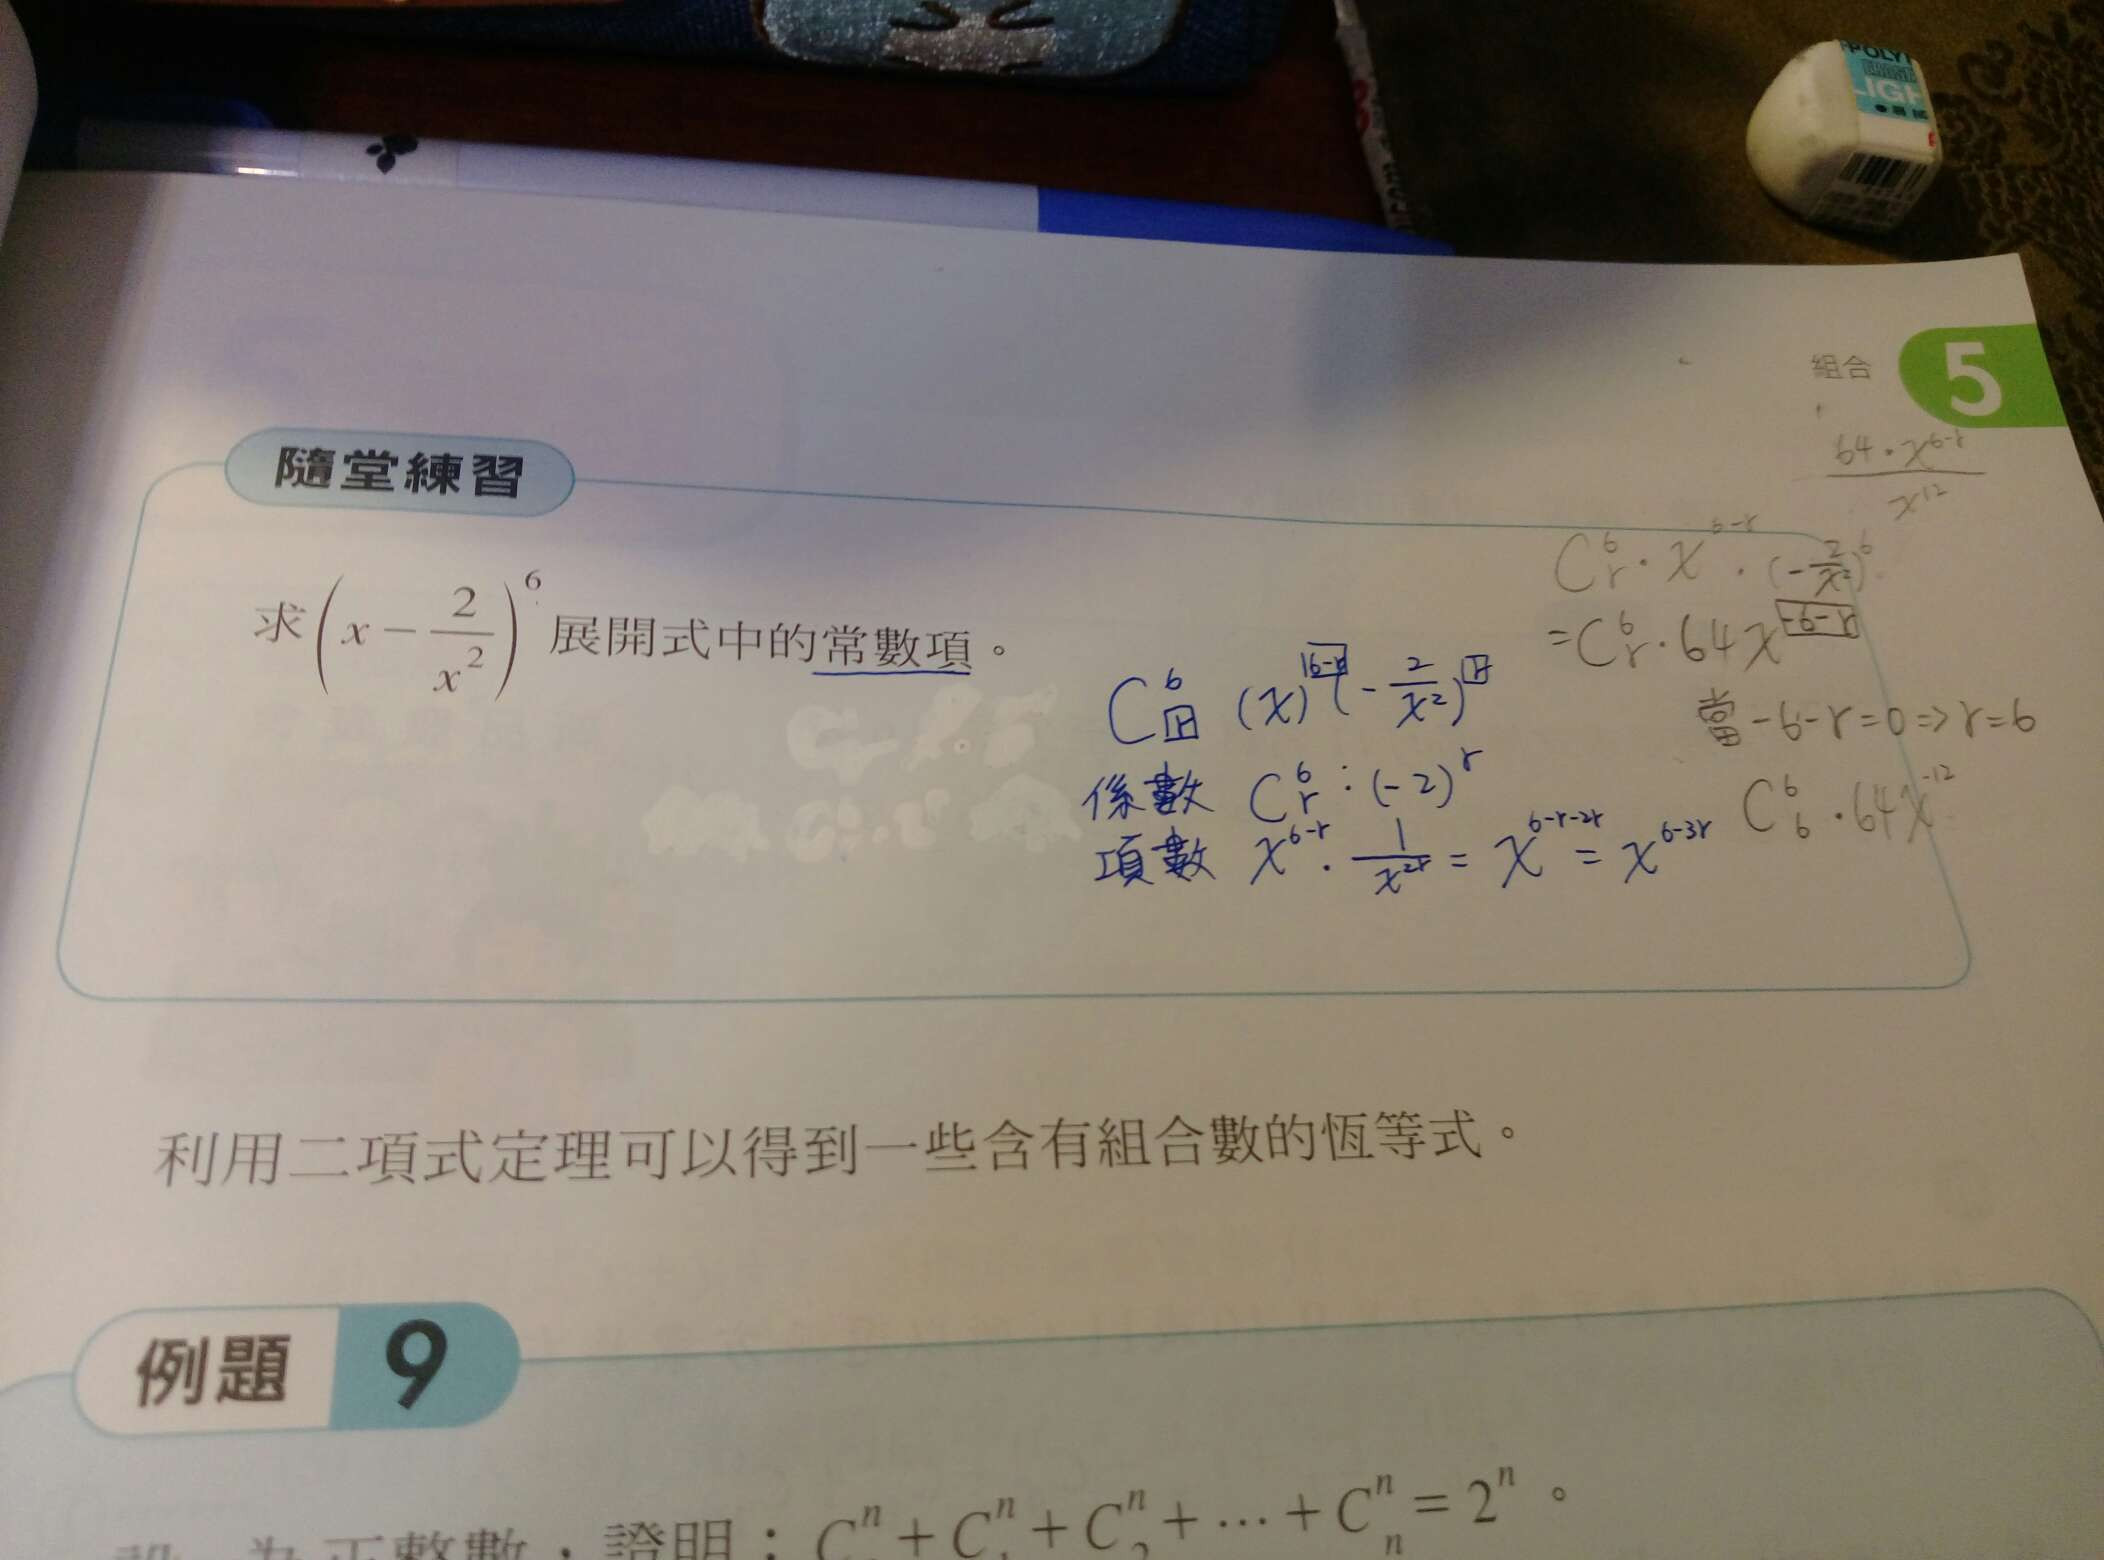 POLY
LIGH
組合 5
64·x^{6-r}
x^{12}
隨堂練習
求(x - \frac{2}{x^2})^6 展開式中的常數項。
C^6_r · x^{6-r} · (-\frac{2}{x^2})^6
= C^6_r · 64x^{-6-r}
當 -6-r=0 => r=6
C^6_6 · 64x^{-12}
C^6_r (x)^{6-r} (-\frac{2}{x^2})^r
係數 C^6_r · (-2)^r
項數 x^{6-r} · \frac{1}{x^{2r}} = x^{6-r-2r} = x^{6-3r}
利用二項式定理可以得到一些含有組合數的恆等式。
例題 9
為正整數,證明:C^n + C^n + C^n_2 + ⋯ + C^n_n = 2^n。